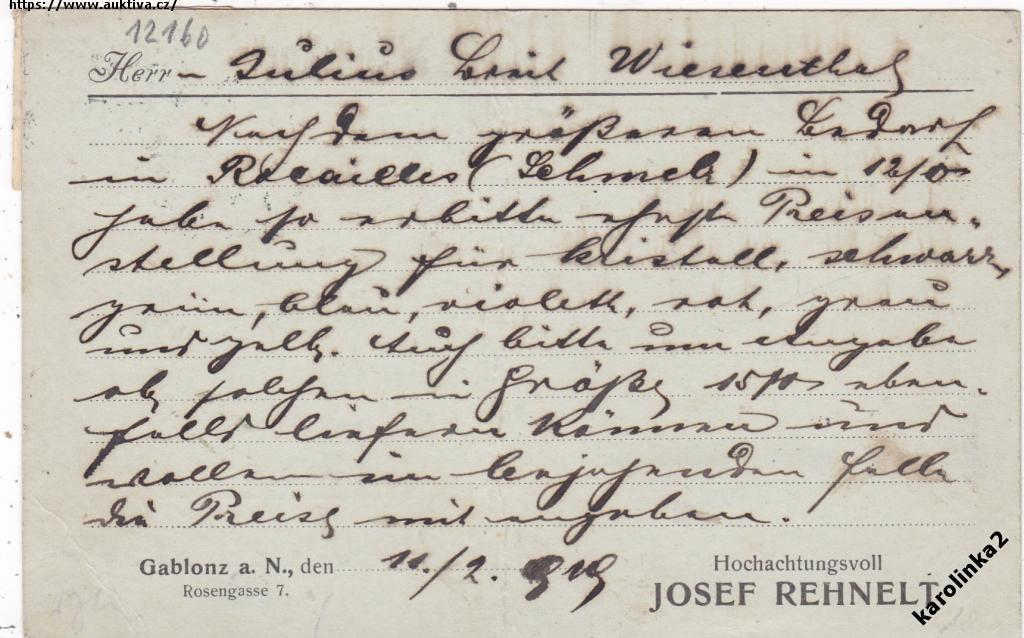 https://www.auktiva.cz/
12160
Herrn Julius Breit Wiesenthal
Nachdem größeren Bedarf
in Rocailles (Schmelz) in 12/0
habe so erbitte ehest Preisan-
stellung für kristall, schwarz,
grün, blau, violett, rot, grau
und gelb. Auch bitte um Angabe
ob solchen in Größe 15/0 eben-
falls liefern können und
wollen im bejahenden Falle
die Preise mit angeben.
Gablonz a. N., den 11./2. 919
Rosengasse 7.
Hochachtungsvoll
JOSEF REHNELT
karolinka2